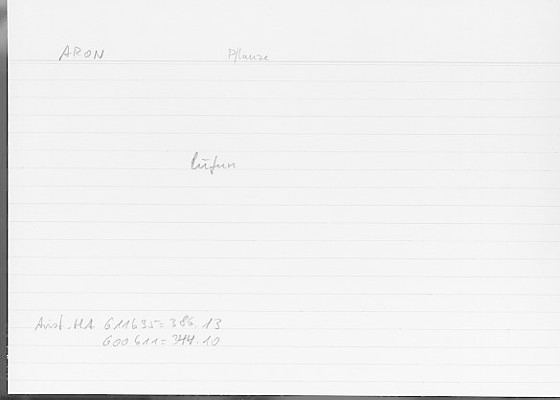 ARON Pflanze
lūfun
Arist. HA 611b35 = 386.13
600b11 = 344.10